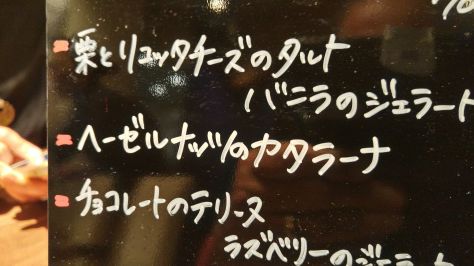 栗とリコッタチーズのタルト
バニラのジェラート
ヘーゼルナッツのカタラーナ
チョコレートのテリーヌ
ラズベリーのジェラート